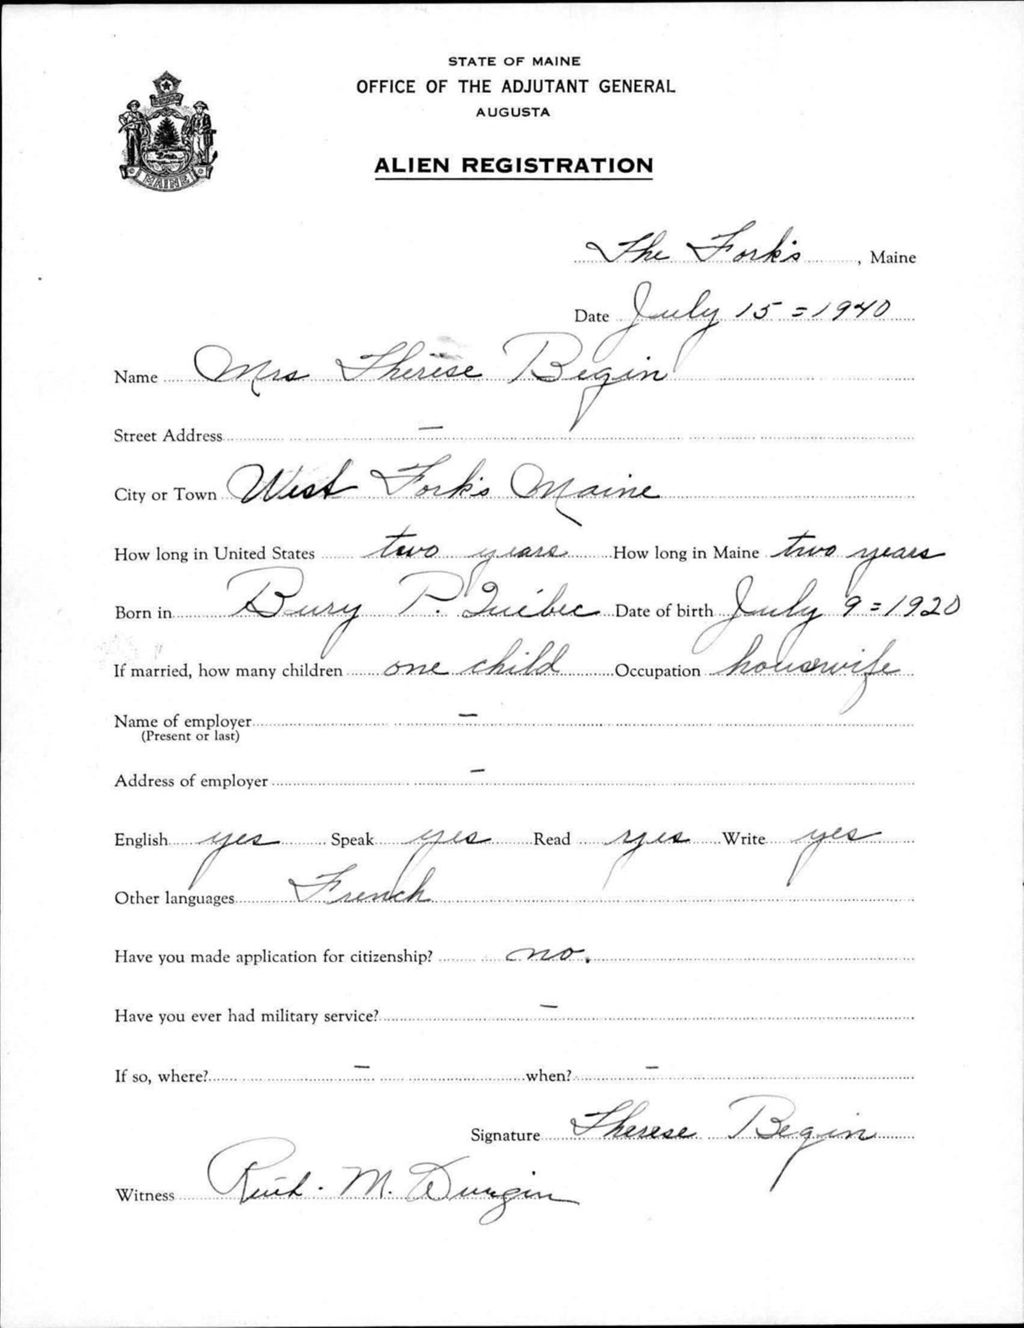 STATE OF MAINE
OFFICE OF THE ADJUTANT GENERAL
AUGUSTA
ALIEN REGISTRATION
MAINE
The Fork's, Maine
Date July 15 = 1940
Name Mrs Therese Begin
Street Address –
City or Town West Fork's Maine
How long in United States two years How long in Maine two years
Born in Bury P. Québec Date of birth July 9 = 1920
If married, how many children one child Occupation housewife
Name of employer –
(Present or last)
Address of employer –
English yes Speak yes Read yes Write yes
Other languages French
Have you made application for citizenship? no.
Have you ever had military service? –
If so, where? – when? –
Signature Therese Begin
Witness Ruth. M. Durgin